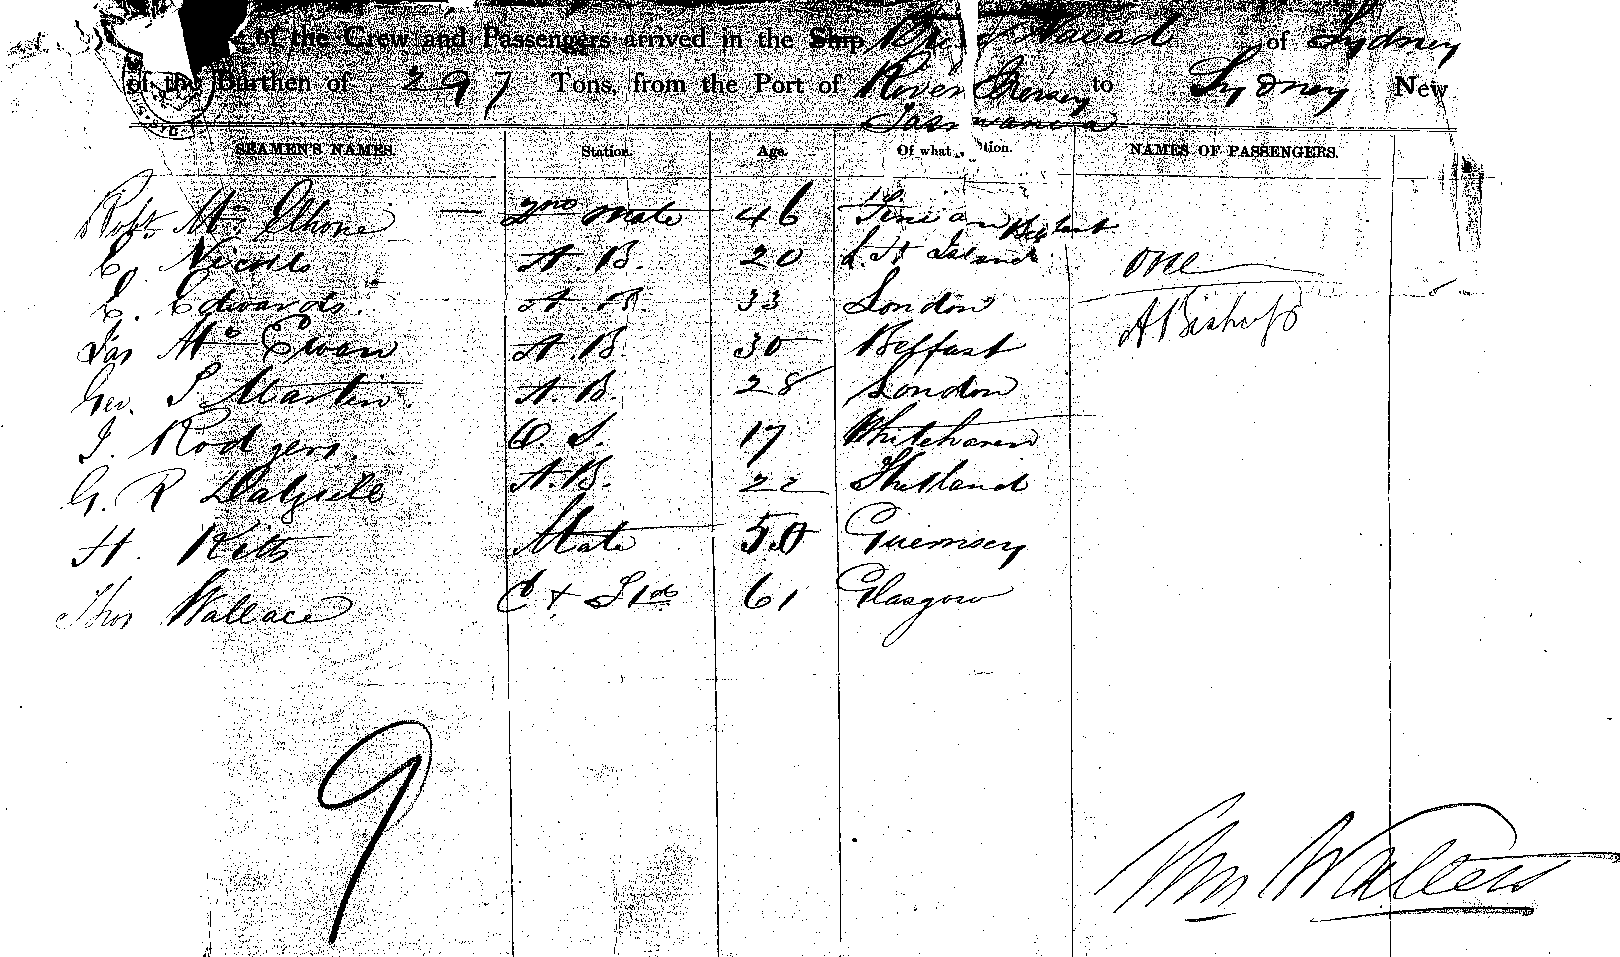 of the Crew and Passengers arrived in the Ship of Sydney
of the Burthen of 297 Tons, from the Port of River Mersey to Sydney New
Tasmania
SEAMEN'S NAMES. Station. Age. Of what tion. NAMES OF PASSENGERS.
Robt. Mc Ilhone 2nd Mate 46 Belfast
C. Nicolls A. B. 20 L. H Island one
E. Edwards A. B. 33 London A Bishop
Jas Mc Ewan A. B. 30 Belfast
Geo. S Martin A. B. 28 London
J. Rodgers O. S. 17 Whitehaven
G. R Dalziell A. B. 22 Shetland
H. Kitts Mate 50 Guernsey
Thos Wallace C & Std 61 Glasgow
9
Wm Walters